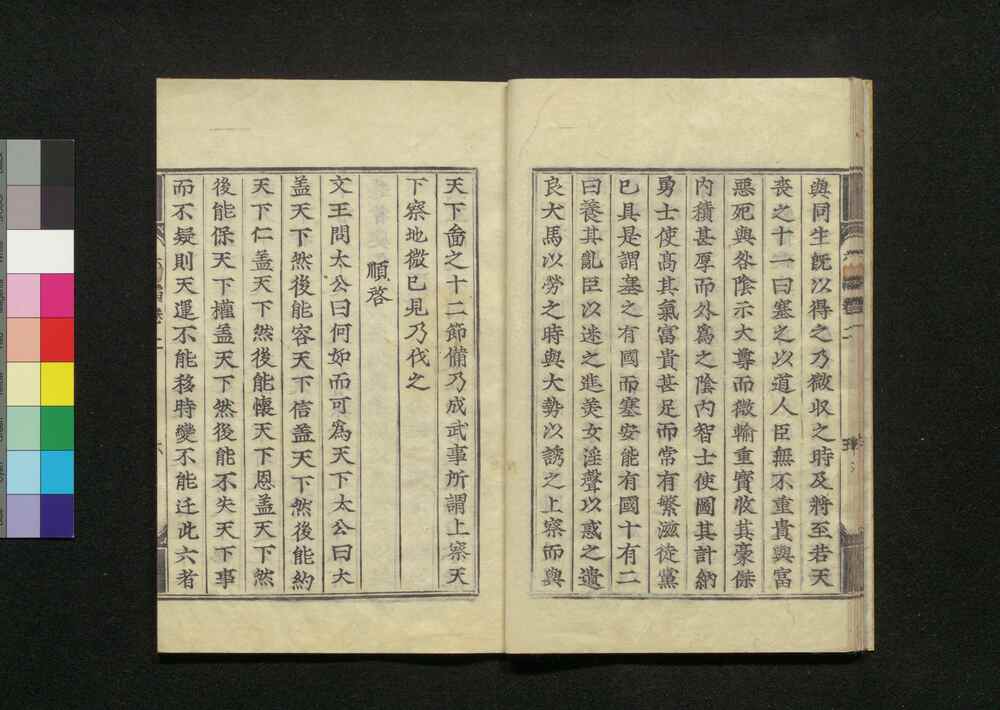 與同生旣以得之乃微収之時及將至若天
喪之十一曰塞之以道人臣無不重貴與富
惡死與咎陰示大尊而微輸重寶收其豪傑
內積甚厚而外爲之陰內智士使圖其計納
勇士使高其氣富貴甚足而常有繁滋徒黨
已具是謂塞之有國而塞安能有國十有二
曰養其亂臣以迷之進美女淫聲以惑之遺
良犬馬以勞之時與大勢以誘之上察而與
天下啚之十二節備乃成武事所謂上察天
下察地徵已見乃伐之
順啓
文王問太公曰何如而可爲天下太公曰大
盖天下然後能容天下信盖天下然後能約
天下仁盖天下然後能懷天下恩盖天下然
後能保天下權盖天下然後能不失天下事
而不疑則天運不能移時變不能迁此六者